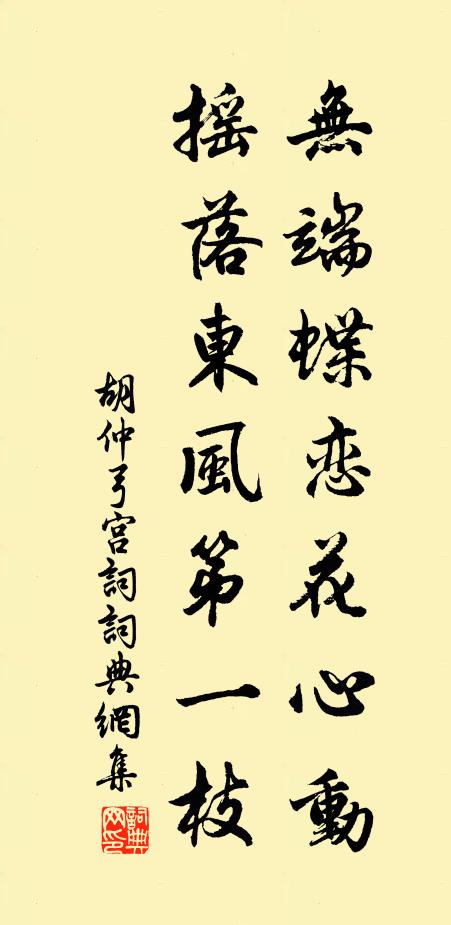 無端蝶恋花心動
摇落東風第一枝
胡仲弓宫詞詞典網集
詞典網印